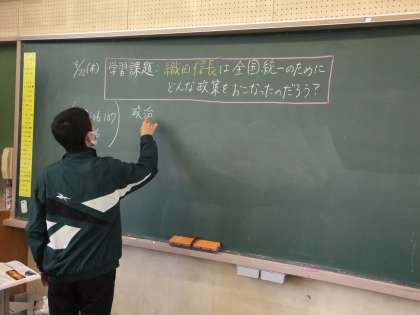 9/22(木) 学習課題. 織田信長は全国統一のために
どんな政策をおこなったのだろう?
政治